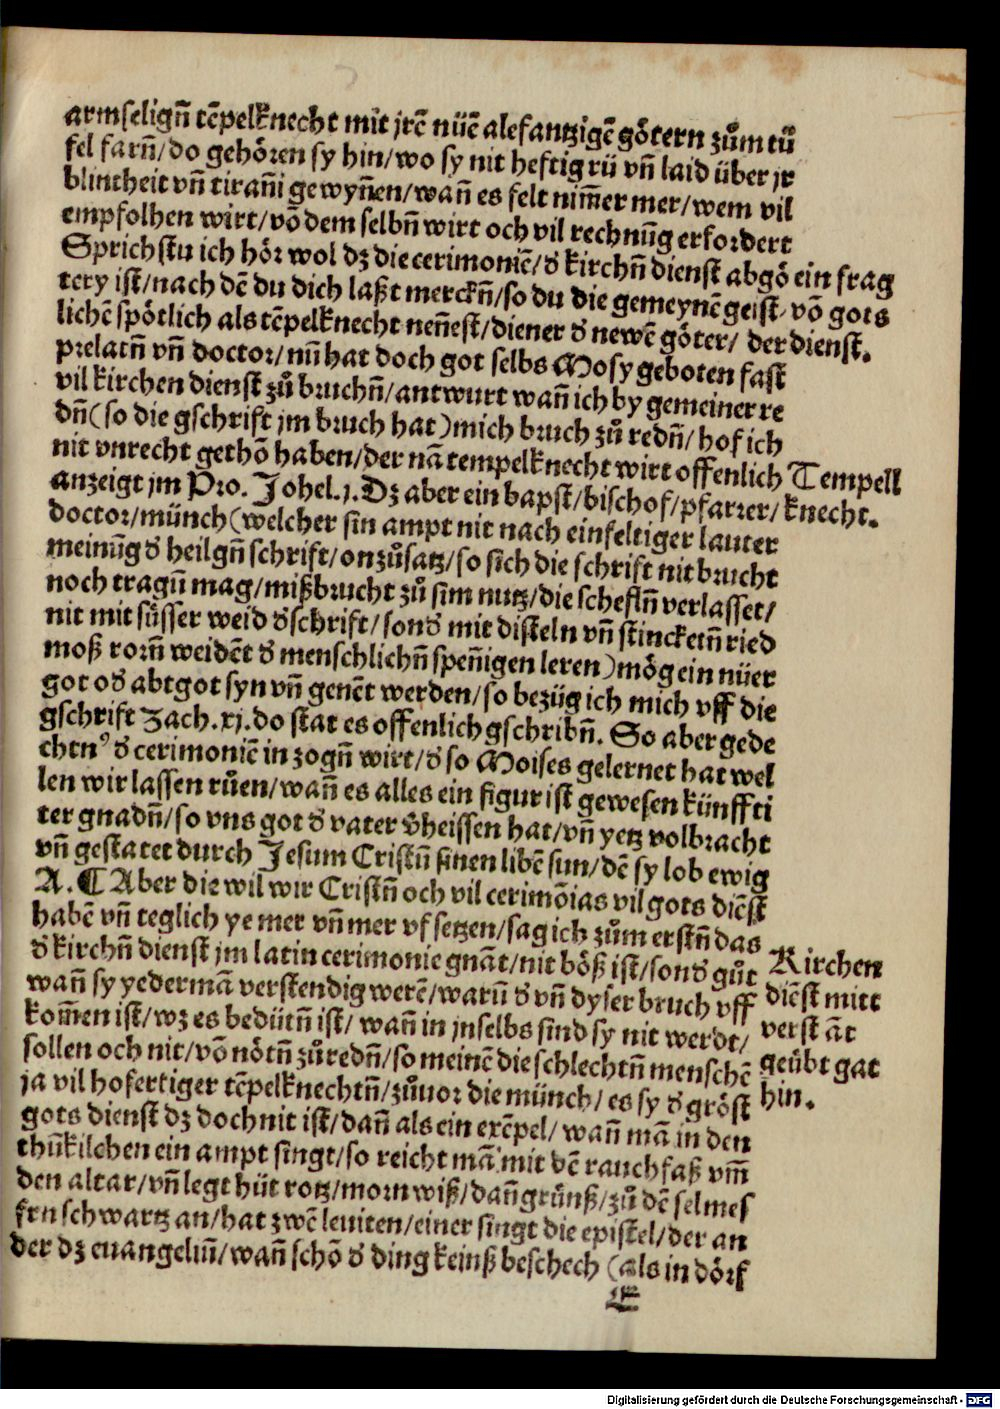 armseligñ tẽpelknecht mit jrẽ nüẽ alefantzigẽ götern zům tů
fel farñ/do gehören sy hin/wo sy nit heftig rü vñ laid über jr
blintheit vñ tirañi gewyñen/wañ es felt nim̃er mer/wem vil
empfolhen wirt/võ dem selbñ wirt och vil rechnũg erfordert
Sprichstu ich hör wol dz die cerimoniẽ/ď kirchñ dienst abgö ein frag
tery ist/nach dẽ du dich laßt merckñ/so du die gemeynẽ geist- võ gots
lichẽ spötlich als tẽpelknecht neñest/diener ď newẽ göter/ der dienst.
prelatñ vñ doctor/nũ hat doch got selbs Mosy geboten fast
vil kirchen dienst zů bruchñ/antwurt wañ ich by gemeiner re
dñ(so die gschrift jm bruch hat)mich bruch zů redñ/hof ich
nit vnrecht gethõ haben/der nã tempelknecht wirt offenlich Tempell
anzeigt jm Pro. Johel.j. Dz aber ein bapst/bischof/pfarrer/ knecht.
doctor/münch(welcher sin ampt nit nach einfeltiger lauter
meinũg ď heilgñ schrift/on zůsatz/so sich die schrift nit brucht
noch tragñ mag/mißbrucht zů sim nutz/die scheflñ verlasset/
nit mit süsser weid ďschrift/sonď mit disteln vñ stincketñ ried
moß rorñ weidẽt ď menschlichñ speñigen leren)mög ein nüer
got oď abtgot syn vñ genẽt werden/so bezüg ich mich vff die
gschrift Zach.xj.do stat es offenlich gschribñ. So aber gede
chtnꝰ ď cerimoniẽ in zogñ wirt/ď so Moises gelernet hat wel
len wir lassen růen/wañ es alles ein figur ist gewesen künffti
ter gnadñ/so vns got ď vater v̆heissen hat/vñ yetz volbracht
vñ gestatet durch Jesum Cristũ sinen libẽ sun/dẽ sy lob ewig
A. ¶ Aber die wil wir Cristñ och vil cerimõias vil gots diẽst
habẽ vñ teglich ye mer vñ mer vf setzen/sag ich zům erstñ das
ď kirchñ dienst jm latin cerimonie gnãt/nit böß ist/sonď gůt Kirchen
wañ sy yedermã verstendig werẽ/warũ ď vñ dyser bruch vff diẽst mitt
kom̃en ist/wz es bedütñ ist/ wañ in jnselbs sind sy nit werdt/ verst ãt
sollen och nit/võ nötñ zůredñ/so meinẽ die schlechtñ menschẽ geübt gat
ja vil hofertiger tẽpelknechtñ/zůuor die münch/es sy ď gröst hin.
gots dienst dz doch nit ist/dañ als ein exẽpel/wañ mã in den
thũkilchen ein ampt singt/so reicht mã mit dẽ rauchfaß vm̃
den altar/vñ legt hüt rotz/morn wiß/dañ grünß/zů dẽ selmes
fen schwartz an/hat zwẽ leuiten/einer singt die epistel/der an
der dz euangeliũ/wañ schõ ď ding keinß beschech (als in dörf
E
Digitalisierung gefördert durch die Deutsche Forschungsgemeinschaft - DFG